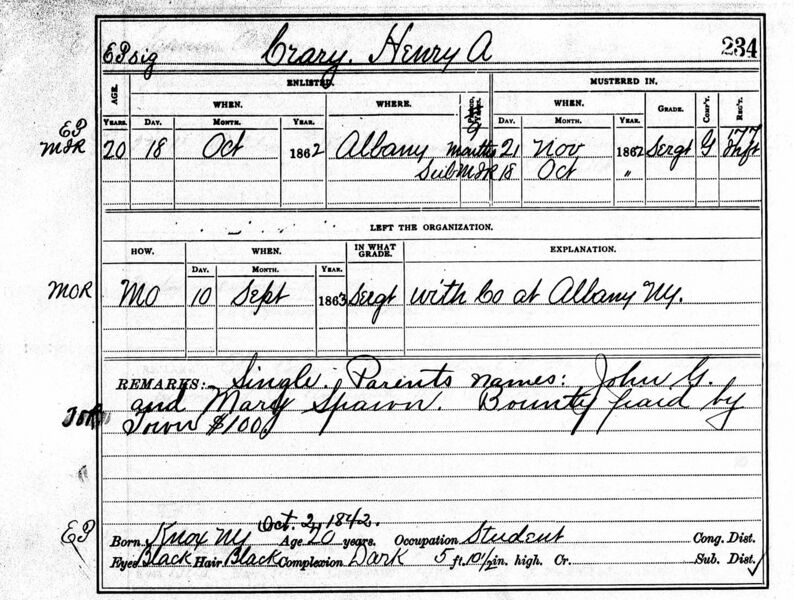 EP sig Crary, Henry A 234
ENLISTED. MUSTERED IN.
AGE. WHEN. WHERE. WHEN. GRADE. COMP'Y. REG'T.
YEARS. DAY. MONTH. YEAR. DAY. MONTH. YEAR.
EP
MIR 20 18 Oct 1862 Albany 9 months 21 Nov 1862 Sergt G 177 Inft
MIR 18 Oct "
LEFT THE ORGANIZATION.
HOW. WHEN. IN WHAT GRADE. EXPLANATION.
DAY. MONTH. YEAR.
MOR MO 10 Sept 1863 Sergt with Co at Albany NY.
REMARKS:- Single. Parents names: John G.
and Mary Spawn. Bounty paid by
Town $100
Oct. 2, 1842.
EP Born Knox NY Age 20 years. Occupation Student Cong. Dist.
Eyes Black Hair Black Complexion Dark 5 ft. 10 1/2 in. high. Cr. Sub. Dist. ✓